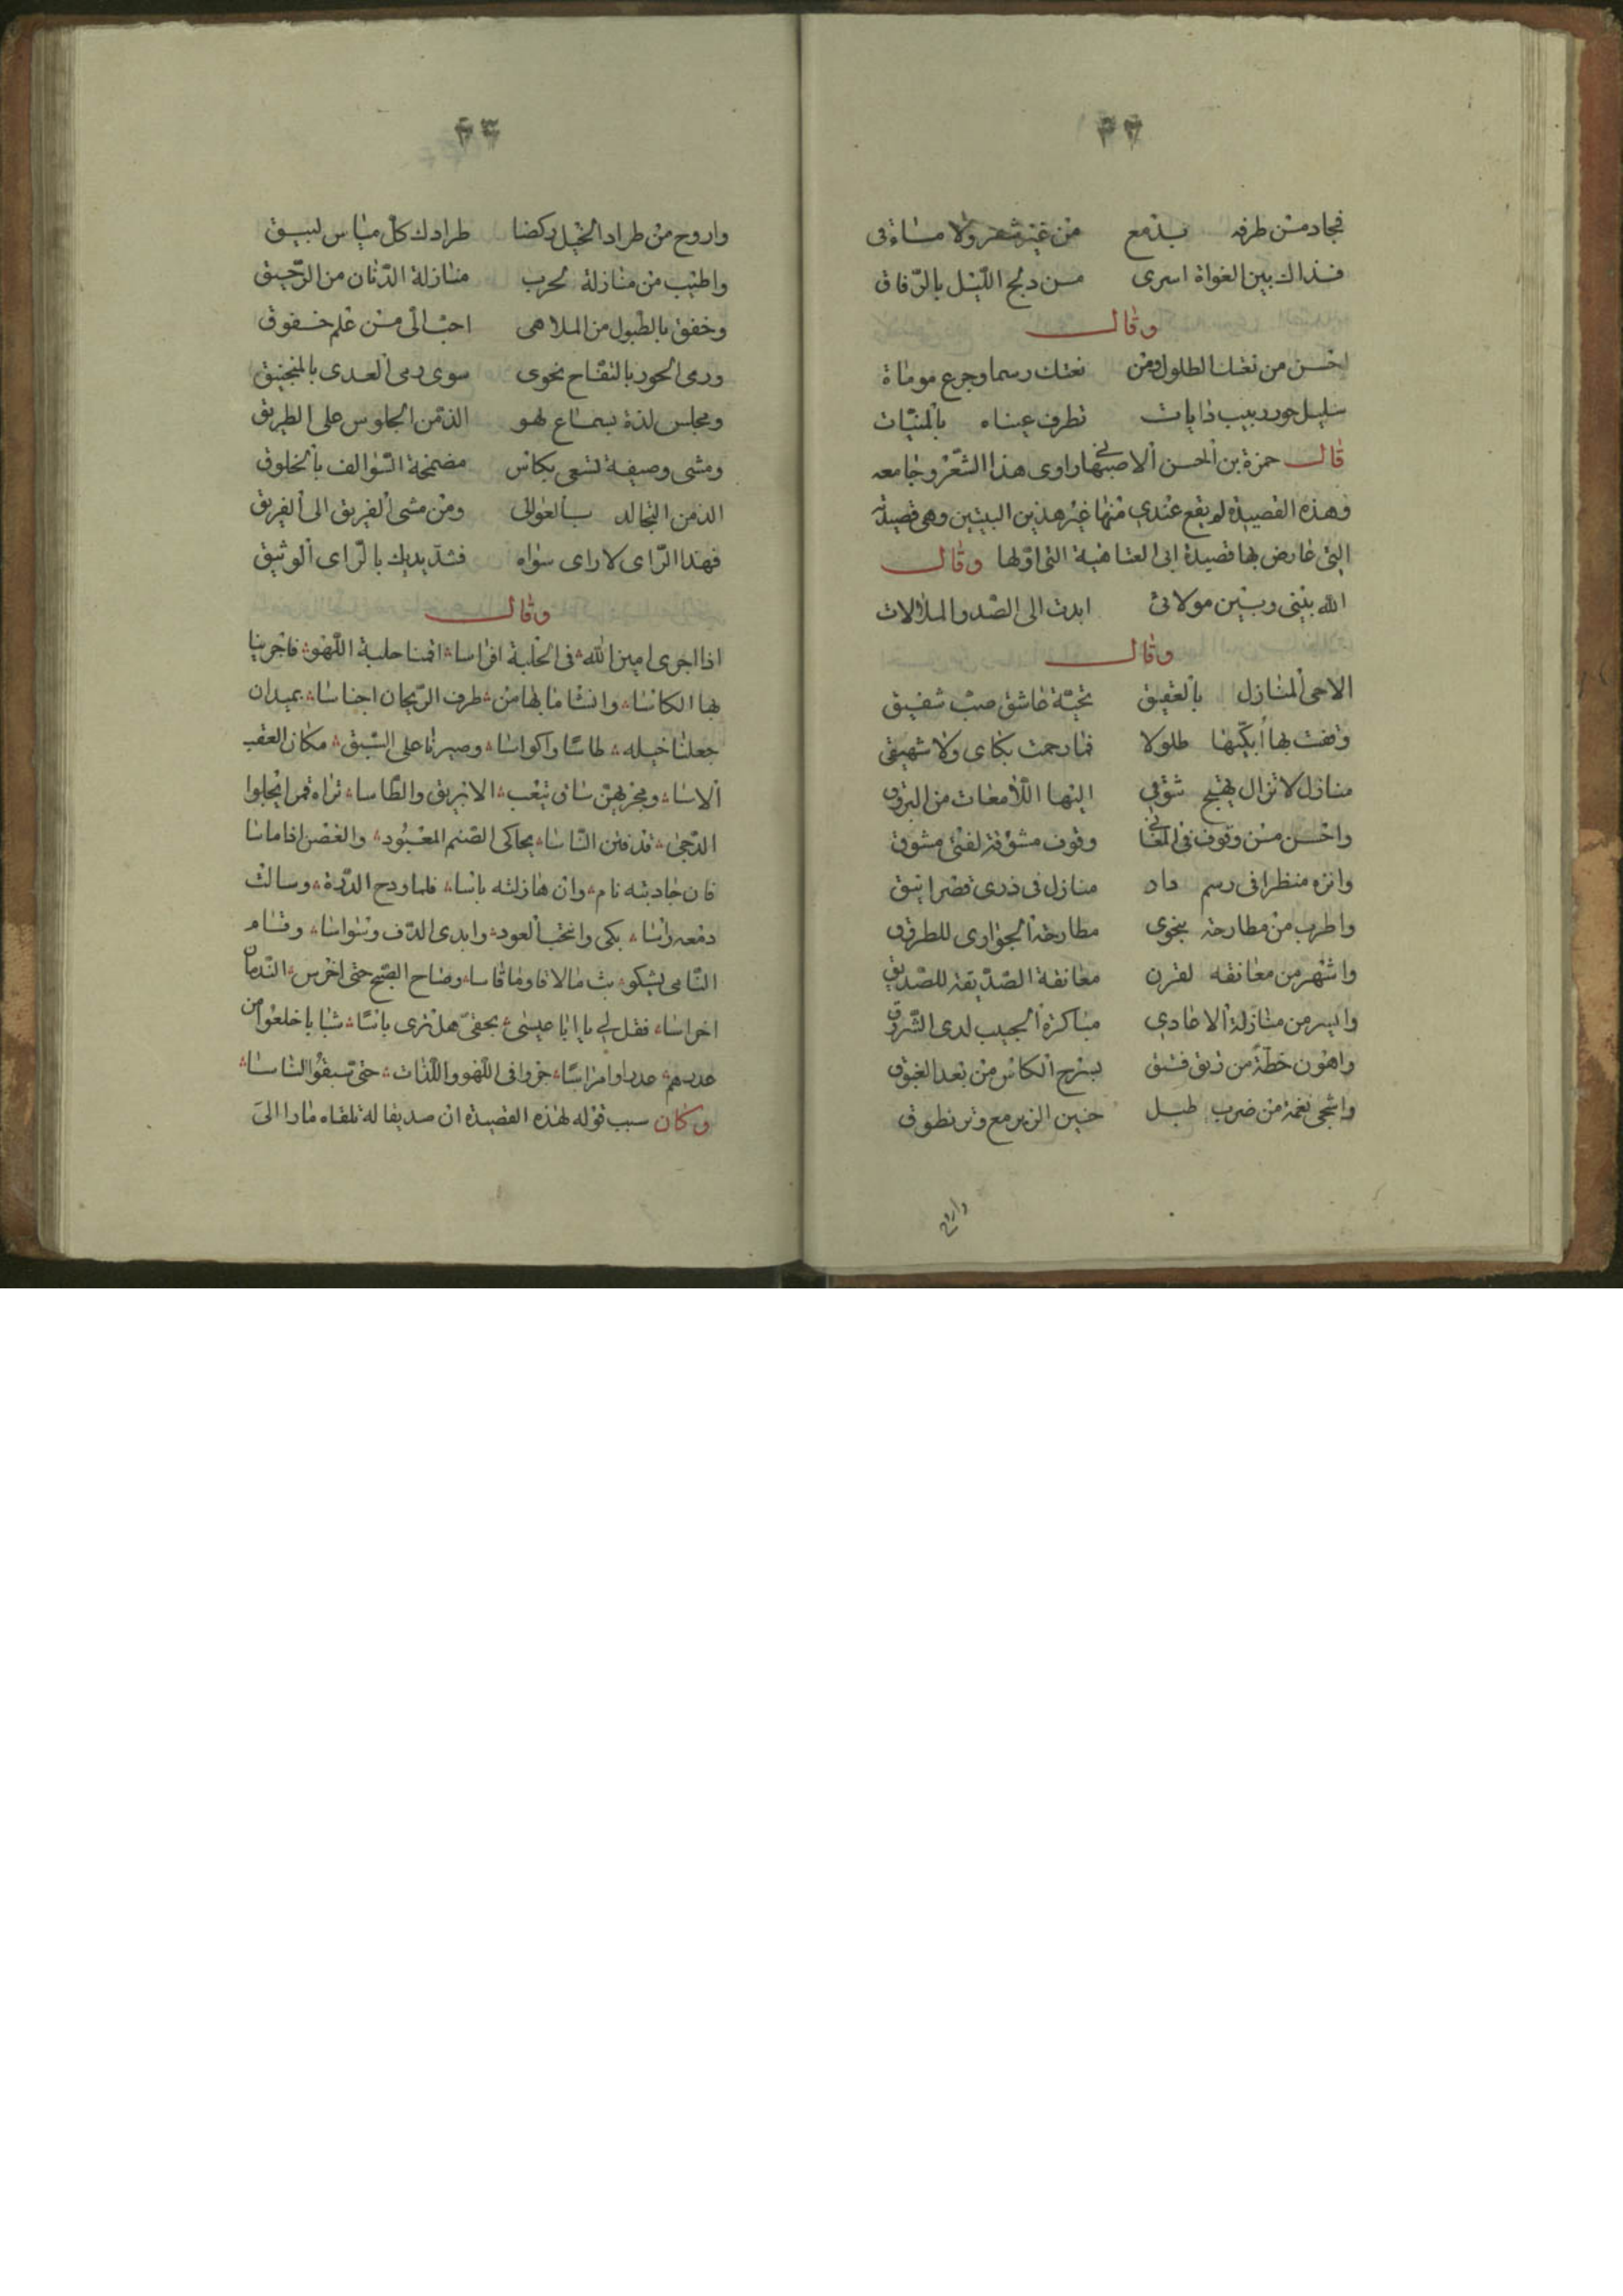 ٤٢
فجاد من طرفه بدمع من غير شعر ولا مساق
فذاك بين الغواة اسرى من دلج الليل بالرفاق
وقال
احسن من نعتك الطلول ومن نعتك رسما وجرع موماة
سليل حور ربيب دايات تطرف عيناه بالمنيات
قال حمزة بن الحسن الاصبهاني راوى هذا الشعر وجامعه
وهذه القصيدة لم يقع عندي منها غير هذين البيتين وهي قصيدة
التي عارض بها قصيدة ابى العتاهية التى اولها وقال
الله بينى وبين مولاتى ابدت الى الصد والملالات
وقال
الا حى المنازل بالعقيق تحية عاشق صب شفيق
وقفت بها أبكيها طلولا فما رحمت بكاى ولا شهيقى
منازل لا تزال يهيج شوقي اليها اللامعات من البروق
واحسن من وقوف في المغانى وقوف مشوقة لفتى مشوق
وانزه منظرا فى رسم دار منازل فى ذرى قصر انيق
واطرب من مطارحة بنجوى مطارحة الجوارى للطروق
واشهر من معانقه لقرن معانقة الصديقة للصديق
وايسر من منازلة الاعادي مباكرة الحبيب لدى الشروق
واهون خطة من رتق فتق بمزج الكاس من بعد الغبوق
واشجى نغمة من ضرب طبل حنين الزير مع وتر نطوق
واروح
٤٣
واروح من طراد الخيل ركضا طرادك كل مياس لبيق
واطيب من منازلة لحرب منازلة الدنان من الرحيق
وخفق بالطبول من الملاهى احب الى من علم خفوق
ورمى الحور بالتفاح نحوى سوى رمى العدى بالمنجنيق
ومجلس لذة بسماع لهو الذ من الجلوس على الطريق
ومشى وصيفة تسعى بكاس مضمخة السوالف بالخلوق
الذ من التجالد بالعوالى ومن مشى الفريق الى الفريق
فهذا الراى لا راى سواه فشد يديك بالراى الوثيق
وقال
اذا اجرى امين الله فى الحلبة افراسا اقمنا حلبة اللهو فاجرينا
بها الكاسا وانشا ما بها من طرف الريحان اجناسا بميدان
جعلنا خيله طاسا واكواسا وصيرنا على السبق مكان العقب
الاسا ومجريهن ساق يتعب الابريق والطاسا تراه قمرا يجلوا
الدجى قد فتن الناسا يحاكى الصنم المعبود والغصن اذا ماسا
فان جادبته نام وان هازلته باسا فلما ودح الدرة وسالت
دمعه راسا بكى وانتخب العود وابدى الدف وسواسا وقام
النامى يشكو بث ما لاقا وما قاسا وصاح الصبح حتى اخرس الندمان
اخراسا فقل لي يا ابا عيسى بحقى هل ترى باسا شبابا خلعوا من
عذرهم عذرا وامراسا جروا فى اللهو واللذات حتى تسبقوا الناسا
وكان سبب قوله لهذه القصيدة ان صديقا له تلقاه مارا الى